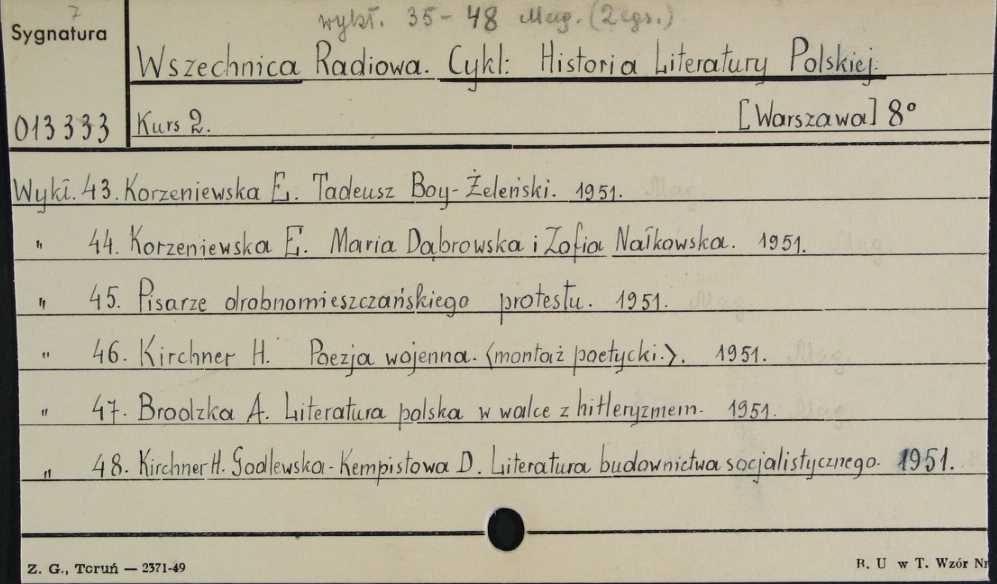 7
wykł. 35-48 Mag. (2 egz.)
Sygnatura
Wszechnica Radiowa. Cykl: Historia Literatury Polskiej.
013333
Kurs 2. [Warszawa] 8°
Wykł. 43. Korzeniewska E. Tadeusz Boy-Żeleński. 1951.
" 44. Korzeniewska E. Maria Dąbrowska i Zofia Nałkowska. 1951.
" 45. Pisarze drobnomieszczańskiego protestu. 1951.
" 46. Kirchner H. Poezja wojenna. <montaż poetycki.>. 1951.
" 47. Brodzka A. Literatura polska w walce z hitleryzmem. 1951.
" 48. Kirchner H. Godlewska-Kempistowa D. Literatura budownictwa socjalistycznego. 1951.
Z. G., Toruń — 2371-49
B. U w T. Wzór Nr